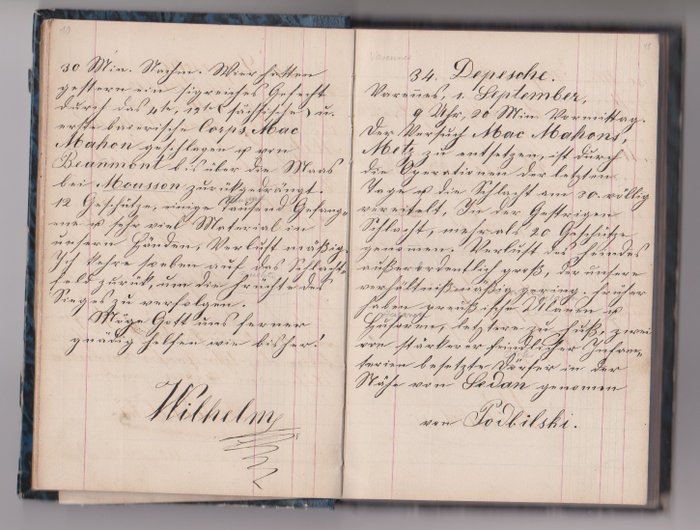 30 Min. Nachm. Wier hatten
gestern ein sigreiches Gefecht
durch das 4te, 12te (sächsische) u.
erste baierische Corps, Mac
Mahon geschlagen u von
Beaumont bis über die Maas
bei Mousson zurükgedrängt.
12 Geschütze, einige Tausend Gefang-
ene u sehr viel Material in
unsern Händen, Verlust mäßig,
Ich kehre soeben auf das Schlacht-
feld zurük, um die früchte des
Sieges zu verfolgen.
Möge Gott uns ferner
gnädig helfen wie bisher!
Wilhelm
Varennes
34. Depesche.
Varennes, 1. September,
9 Uhr, 20 Min. Vormittag.
Der Versuch Mac Mahons,
Metz zu entsetzen, ist durch
die Operationen der letzten
Tage u die Schlacht am 30. völlig
vereitelt, In der Gestrigen
Schlacht, mehr als 20 Geschütze
genomen. Verlust des feindes
außerordentlich groß, der unsere
verhältnißmäßig gering. früher
haben preußische Ulanen u
Husaren, letztere zu fuß, zwei
von stärkerer feindlicher Infan-
terien besetzte Dörfer in der
Nähe von Sedan genomen
von Podbilski.